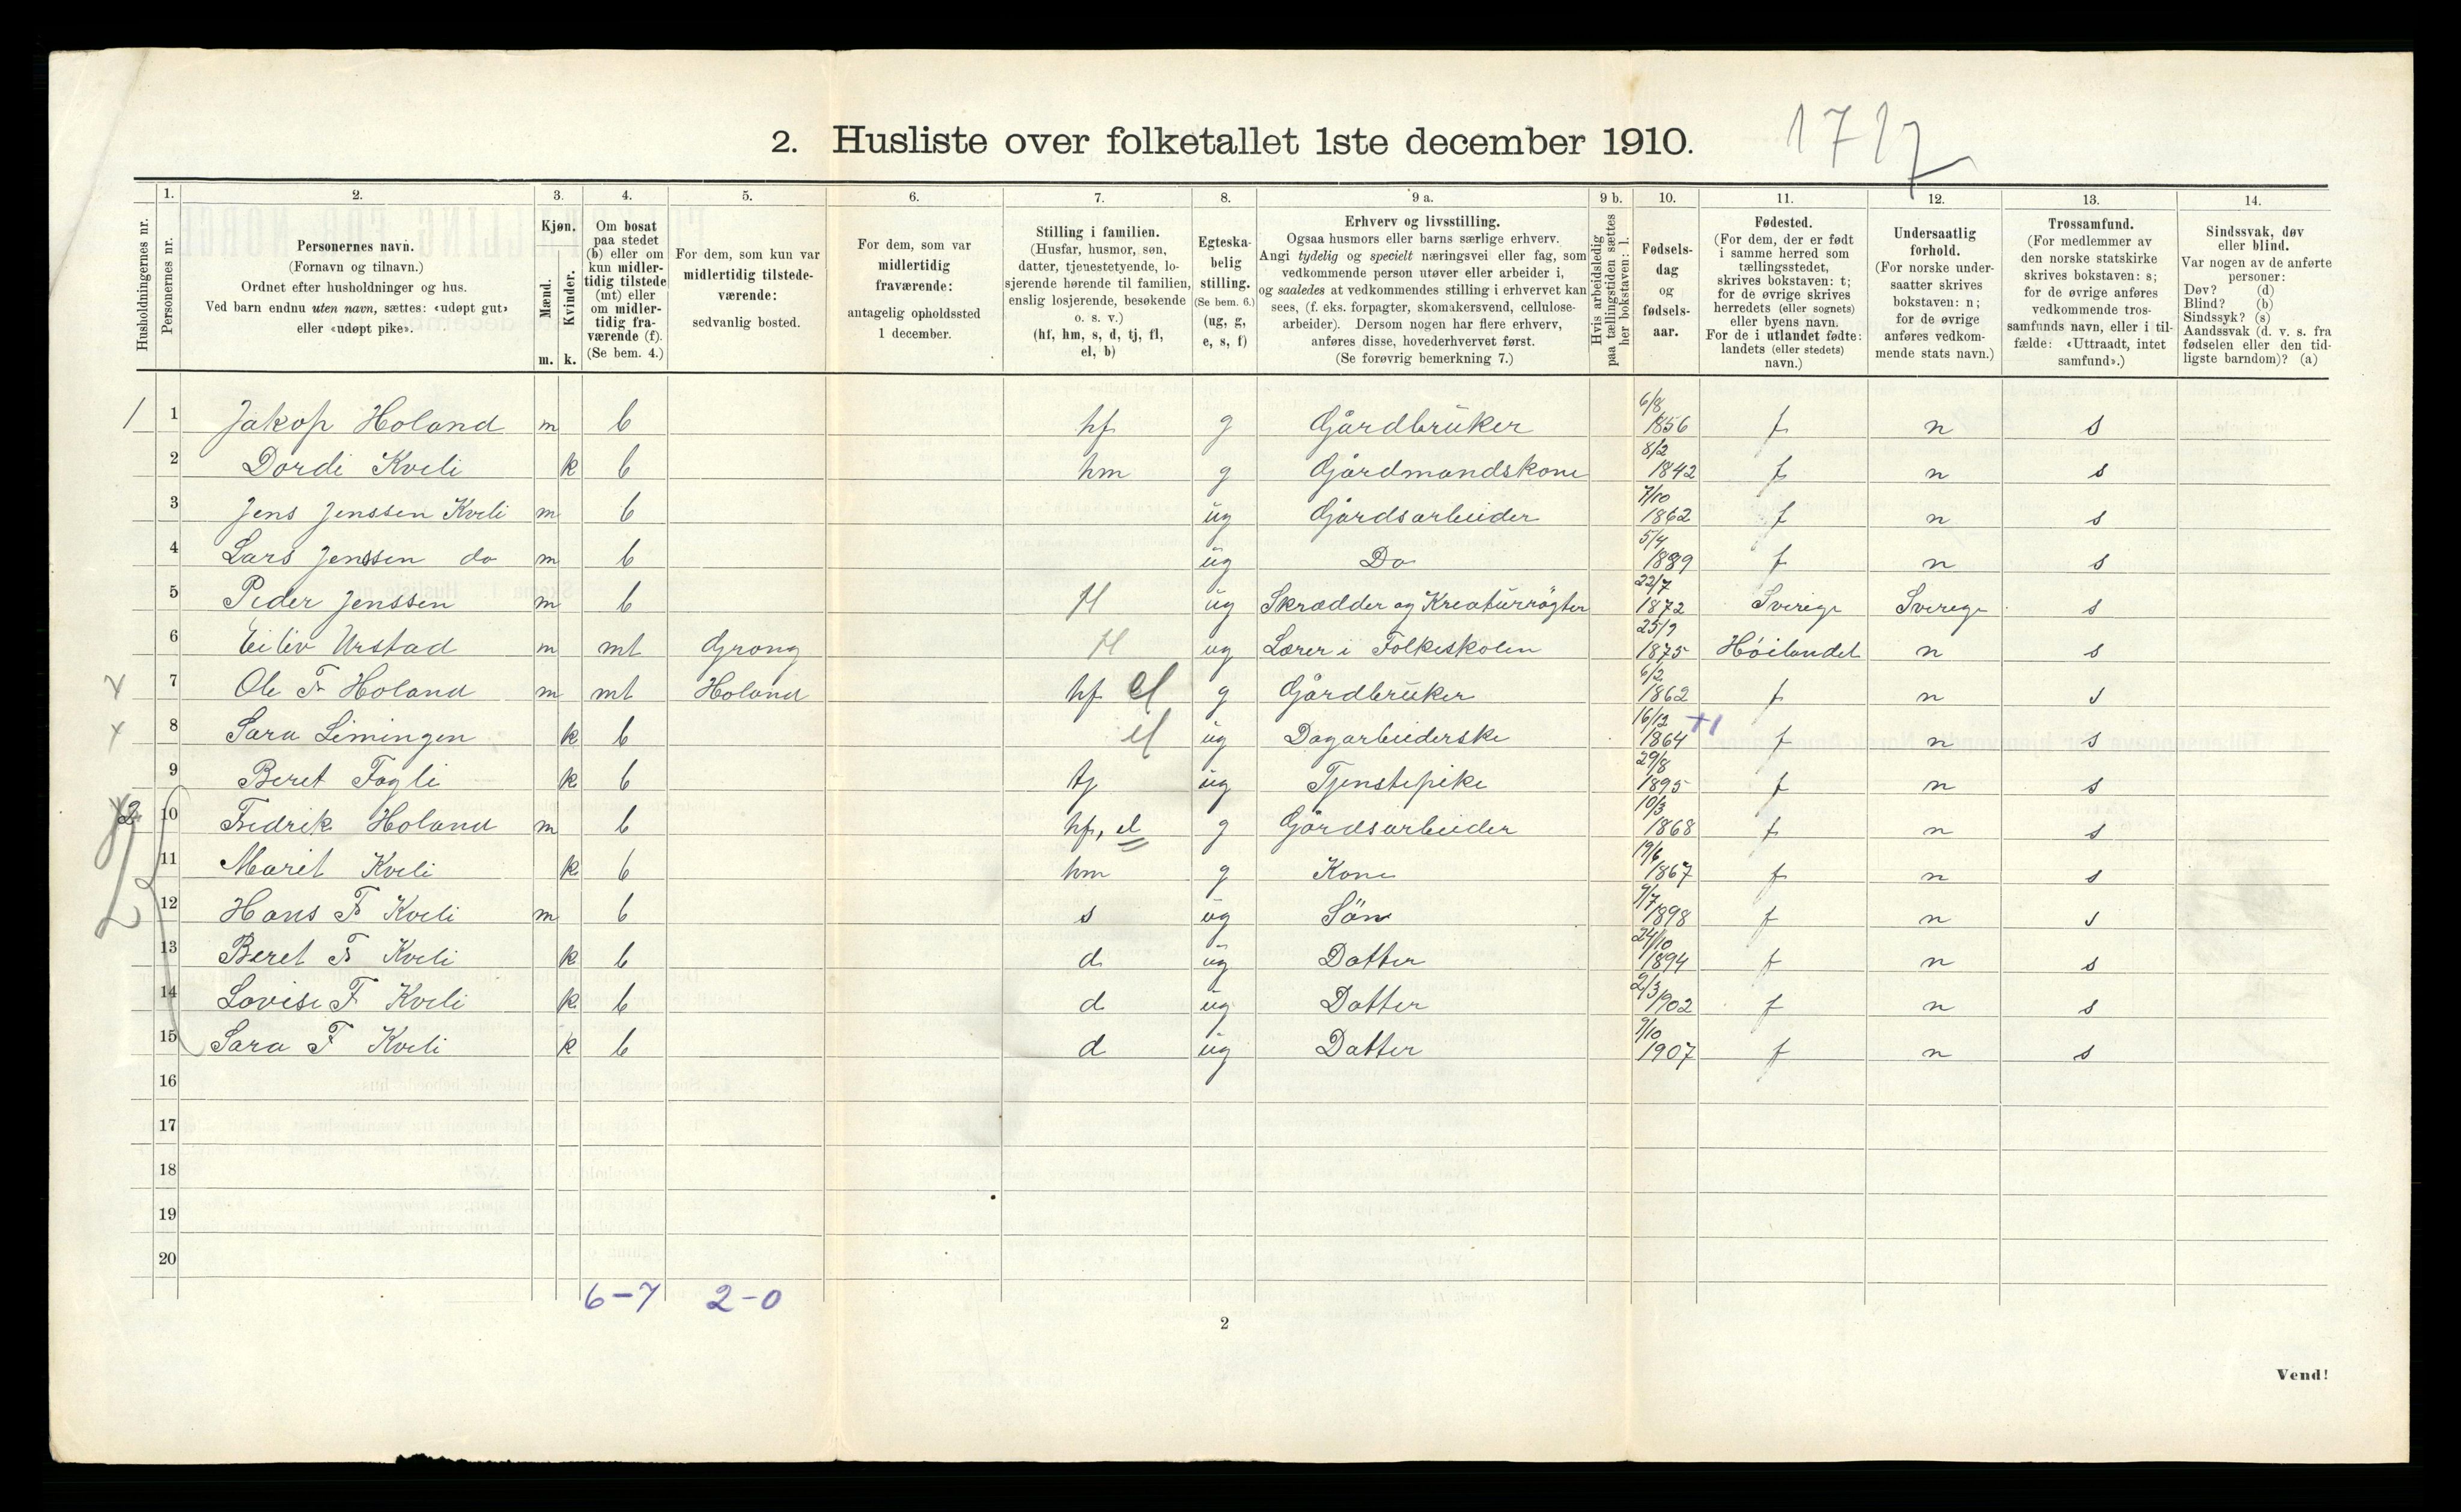 2. Husliste over folketallet 1ste december 1910.
1717
Husholdningernes nr.
1. Personernes nr.
2. Personernes navn. (Fornavn og tilnavn.) Ordnet efter husholdninger og hus. Ved barn endnu uten navn, sættes: «udøpt gut» eller «udøpt pike».
3. Kjøn. Mænd. m. Kvinder. k.
4. Om bosat paa stedet (b) eller om kun midlertidig tilstede (mt) eller om midlertidig fraværende (f). (Se bem. 4.)
5. For dem, som kun var midlertidig tilstedeværende: sedvanlig bosted.
6. For dem, som var midlertidig fraværende: antagelig opholdssted 1 december.
7. Stilling i familien. (Husfar, husmor, søn, datter, tjenestetyende, losjerende hørende til familien, enslig losjerende, besøkende o. s. v.) (hf, hm, s, d, tj, fl, el, b)
8. Egteskabelig stilling. (Se bem. 6.) (ug, g, e, s, f)
9 a. Erhverv og livsstilling. Ogsaa husmors eller barns særlige erhverv. Angi tydelig og specielt næringsvei eller fag, som vedkommende person utøver eller arbeider i, og saaledes at vedkommendes stilling i erhvervet kan sees, (f. eks. forpagter, skomakersvend, cellulosearbeider). Dersom nogen har flere erhverv, anføres disse, hovederhvervet først. (Se forøvrig bemerkning 7.)
9 b. Hvis arbeidsledig paa tællingstiden sættes her bokstaven: l.
10. Fødselsdag og fødselsaar.
11. Fødested. (For dem, der er født i samme herred som tællingsstedet, skrives bokstaven: t; for de øvrige skrives herredets (eller sognets) eller byens navn. For de i utlandet fødte: landets (eller stedets) navn.)
12. Undersaatlig forhold. (For norske undersaatter skrives bokstaven: n; for de øvrige anføres vedkommende stats navn.)
13. Trossamfund. (For medlemmer av den norske statskirke skrives bokstaven: s; for de øvrige anføres vedkommende trossamfunds navn, eller i tilfælde: «Uttraadt, intet samfund».)
14. Sindssvak, døv eller blind. Var nogen av de anførte personer: Døv? (d) Blind? (b) Sindssyk? (s) Aandssvak (d. v. s. fra fødselen eller den tidligste barndom)? (a)
1 1 Jakop Holand m b hf g Gårdbrüker 6/8 1856 f n s
2 Dordi Kveli k b hm g Gårdmandskone 8/2 1842 f n s
3 Jens Jenssen Kveli m b üg Gårdsarbeider 7/10 1862 f n s
4 Lars Jenssen do m b üg Do 5/4 1889 f n s
5 Peder Jenssen m b fl üg Skrædder og Kreatürrögter 22/7 1872 Sverige Sverege s
6 Eiliv Urstad m mt Grong fl ug Lærer i Folkeskolen 25/9 1875 Höilandet n s
7 Ole F Holand m mt Holand hf el g Gårdbrüker 6/2 1862 f n s
8 Sara Limingen k b el üg Dagarbeiderske 16/12 1864 f n s
9 Beret Fagli k b tj üg Tjenstepike 29/8 1895 f n s
2 10 Fredrik Holand m b hf, el g Gårdsarbeider 10/3 1868 f n s
11 Marit Kveli k b hm g Kone 19/6 1867 f n s
12 Hans F Kveli m b s üg Sön 9/7 1898 f n s
13 Beret F Kveli k b d üg Datter 24/10 1894 f n s
14 Lovise F Kveli k b d üg Datter 2/3 1902 f n s
15 Sara F Kveli k b d üg Datter 9/10 1907 f n s
16
17
18
19
20
6-7 2-0
2
Vend!